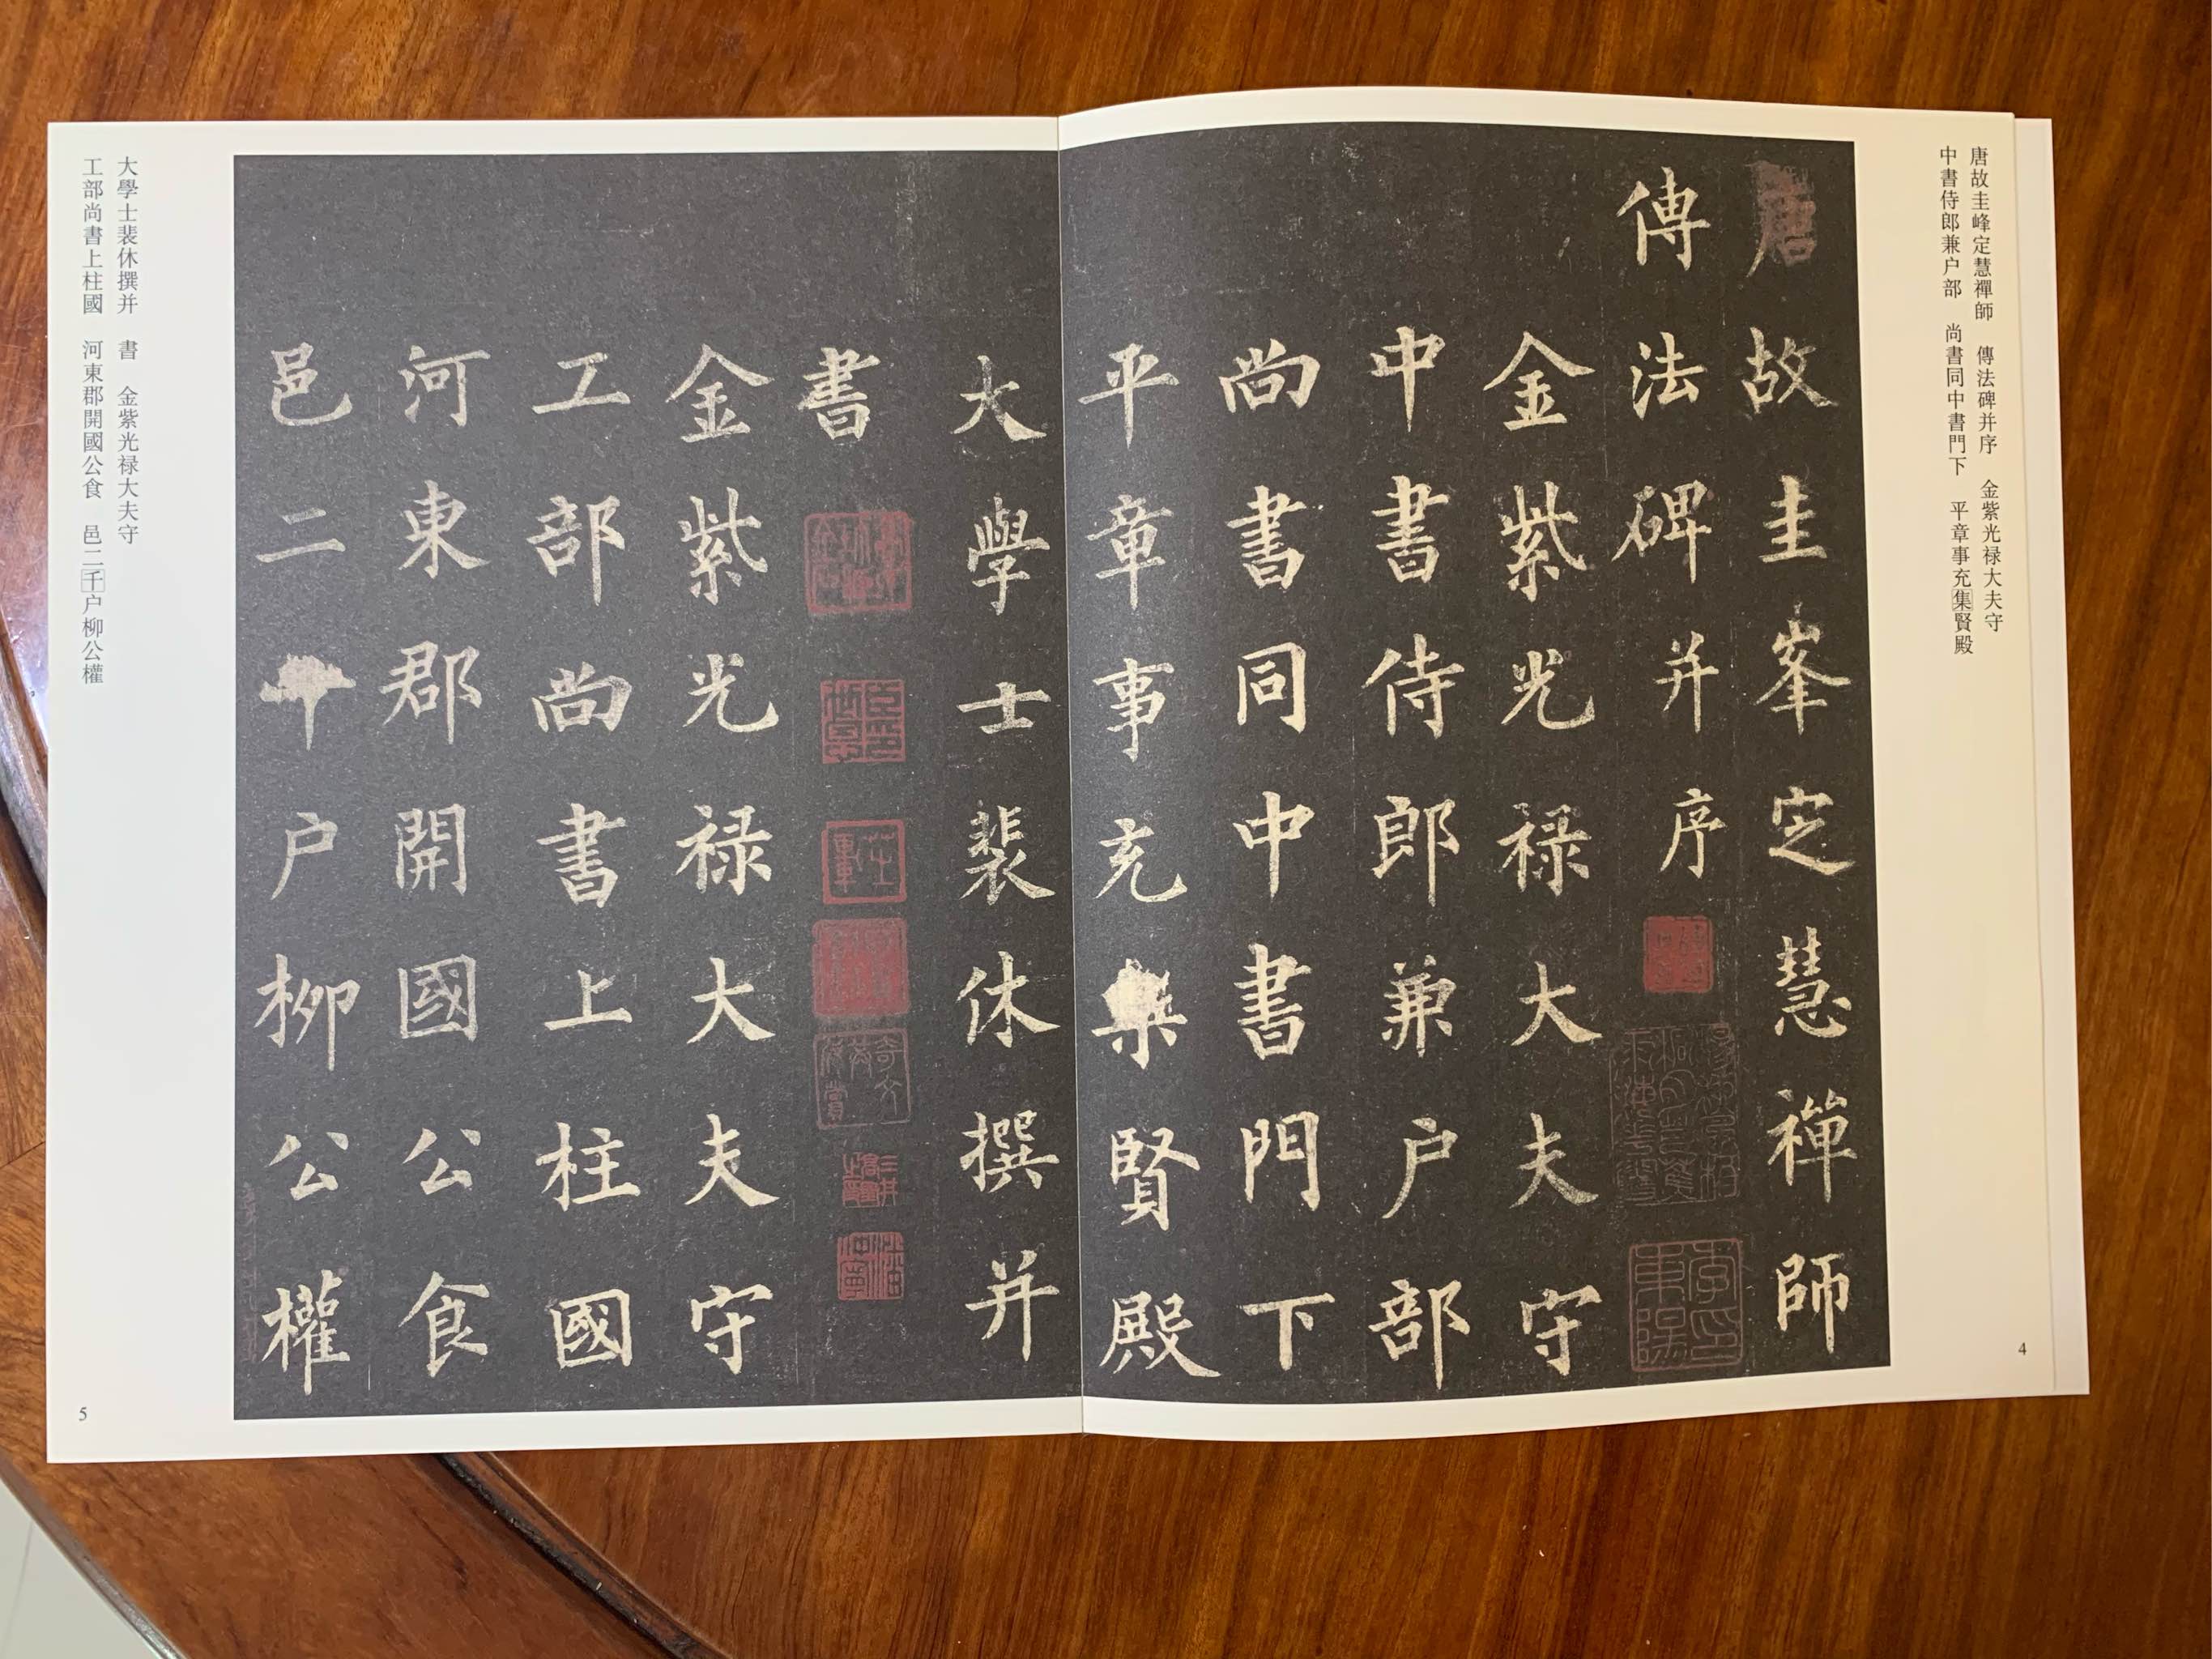 唐故圭峰定慧禪師　傳法碑并序　金紫光禄大夫守
中書侍郎兼户部　尚書同中書門下　平章事充集賢殿
唐故圭峯定慧禪師
傳法碑并序
金紫光禄大夫守
中書侍郎兼户部
尚書同中書門下
平章事充集賢殿
4
大學士裴休撰并
書
金紫光禄大夫守
工部尚書上柱國
河東郡開國公食
邑二千户柳公權
大學士裴休撰并　書　金紫光禄大夫守
工部尚書上柱國　河東郡開國公食　邑二千户柳公權
5